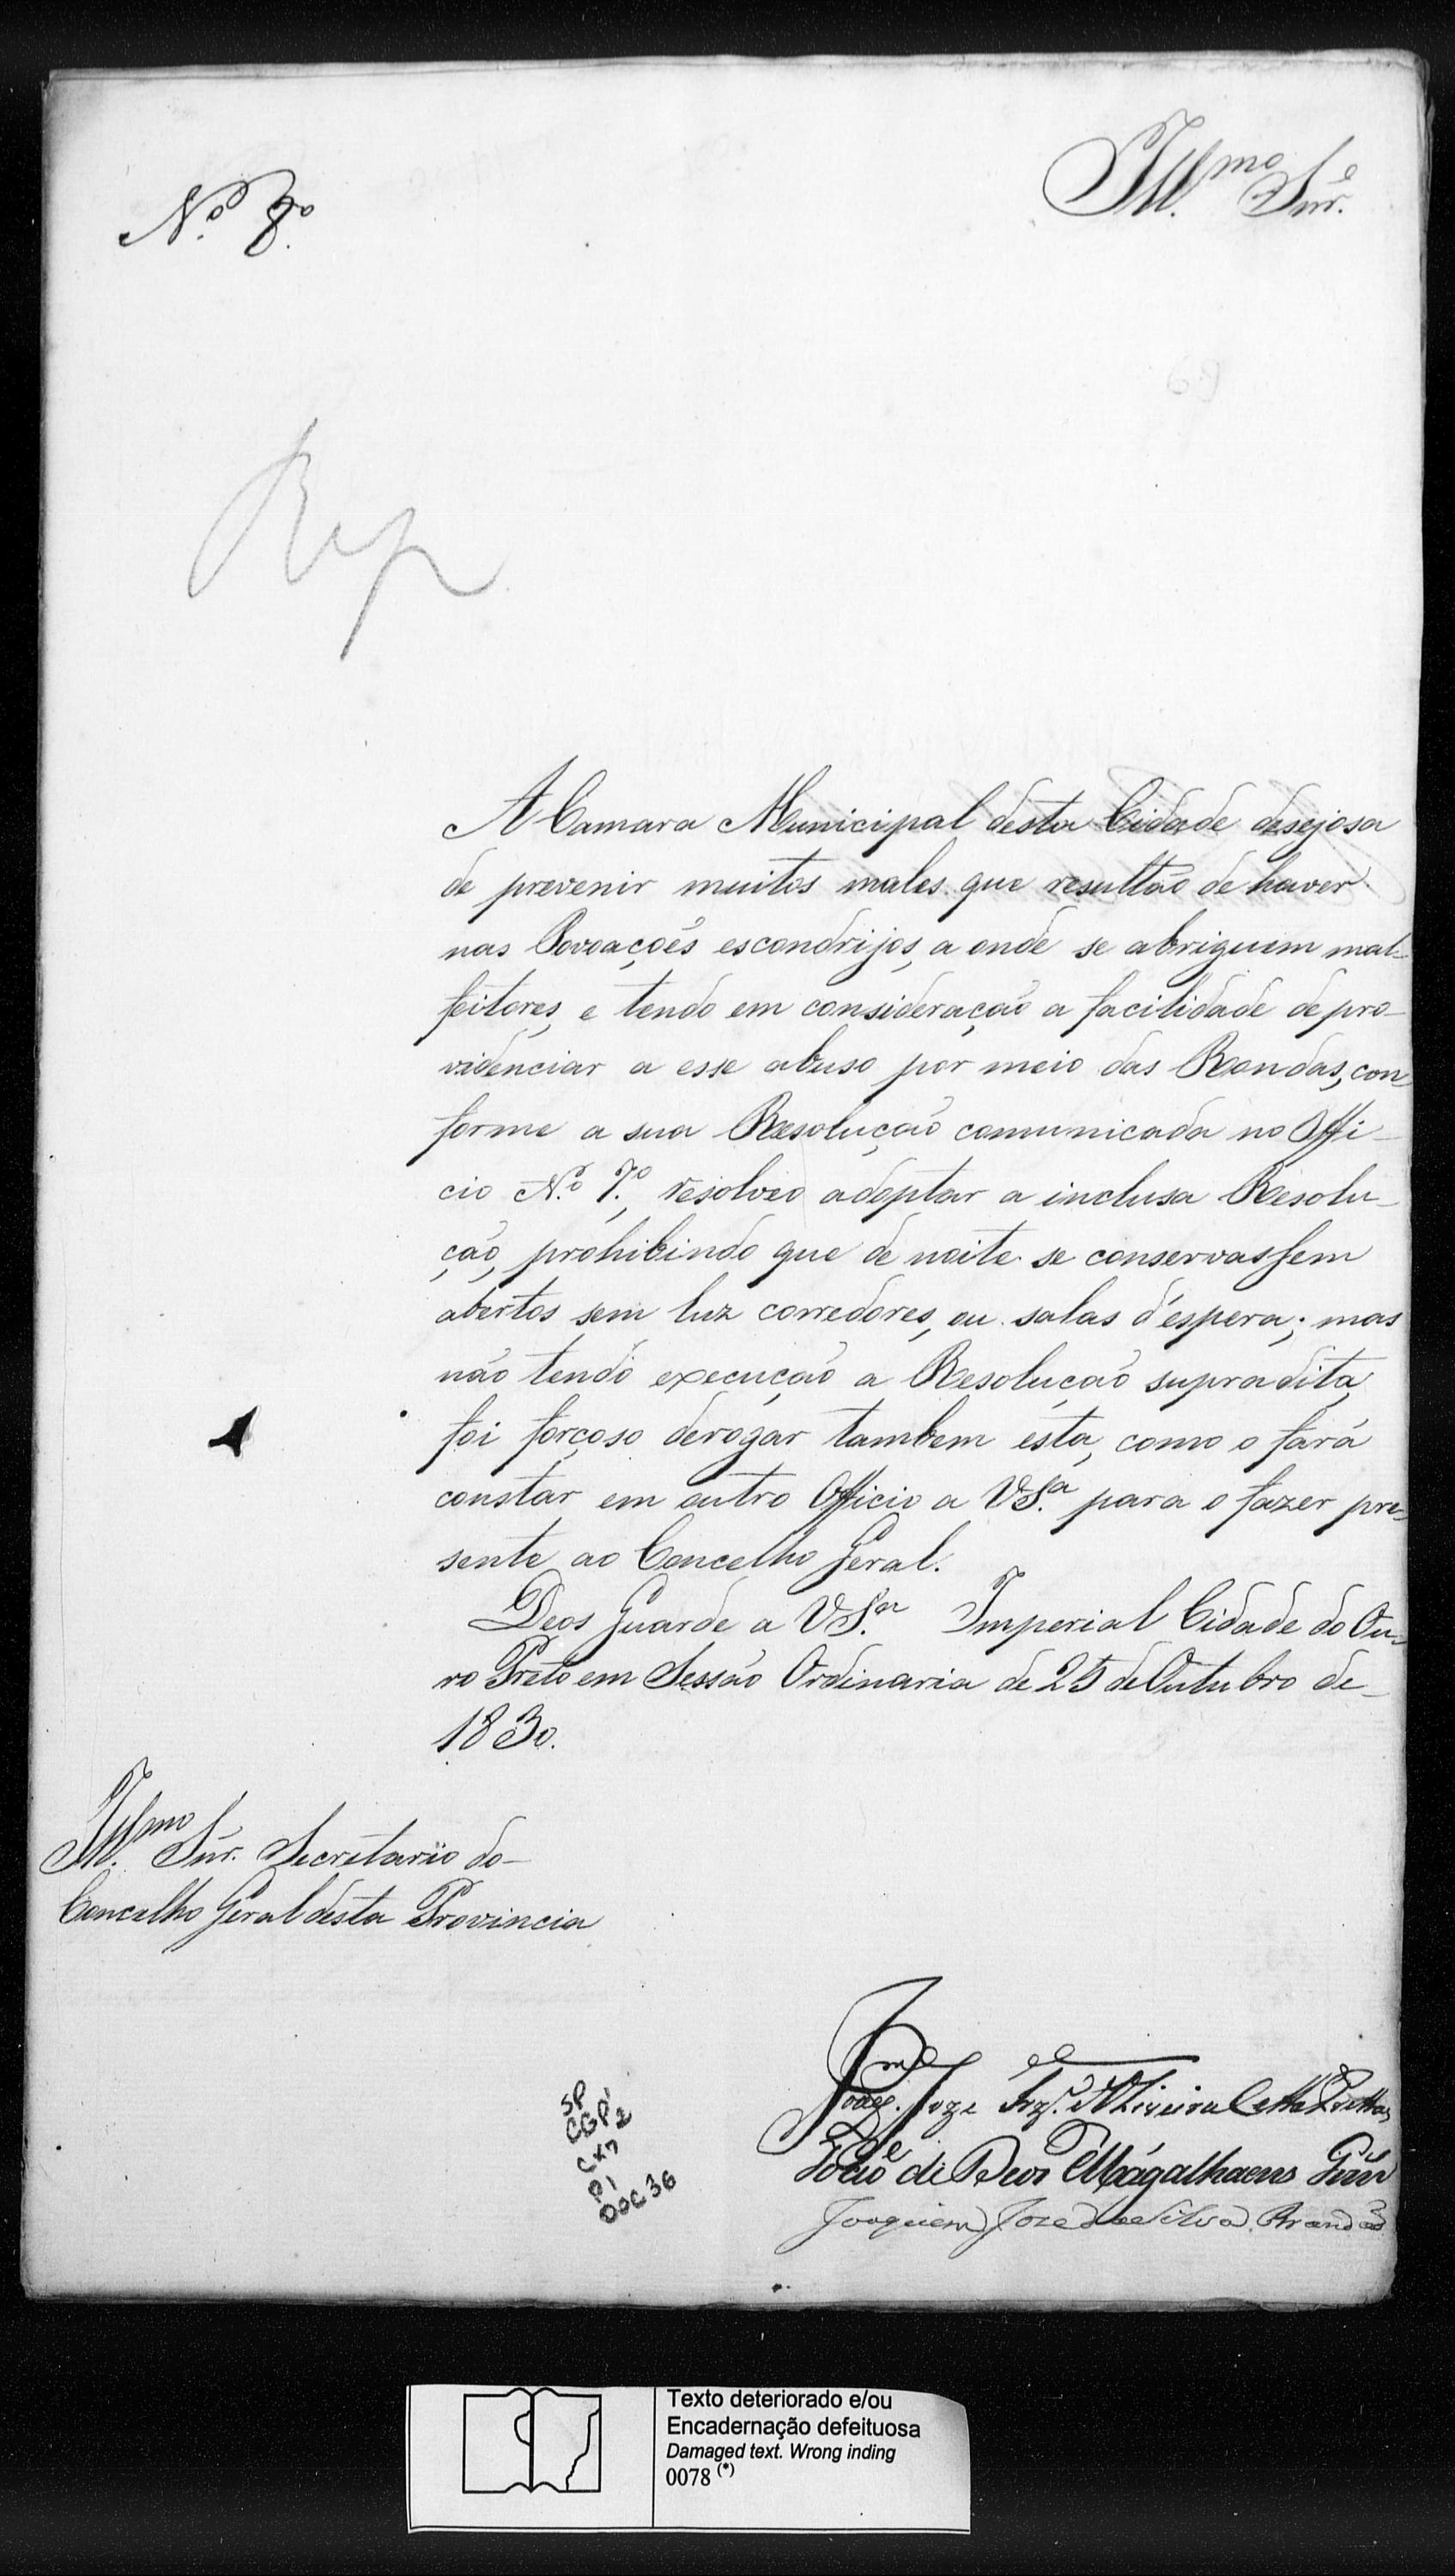 N.º 8º
Ill.mo Snr.
Rep
A Camara Municipal desta Cidade desejosa
de prevenir muitos males que resultão de haver
nas Povoações escondrijos, a onde se abriguem mal-
feitores, e tendo em consideração a facilidade de pro-
videnciar a esse abuso por meio das Rondas, con-
forme a sua Resolução comunicada no Offi-
cio N.º 7.º, resolveo adoptar a inclusa Resolu-
ção, prohibindo que de noite se conservassem
abertos sem luz corredores, ou salas d'espera; mas
não tendo execução a Resolução supradita,
foi forçoso derogar tambem esta, como o fará
constar em outro Officio a VS.ª para o fazer pre-
sente ao Concelho Geral.
Deos Guarde a VS.ª Imperial Cidade do Ou-
ro Preto em Sessão Ordinaria de 25 de Outubro de
1830.
Ill.mo Snr. Secretario do
Concelho Geral desta Provincia
Joze
João de Deos Magalhaens
Joaquim Joze da Silva Brandão
SP
CGP1
CX7
P1
DOC 36
Texto deteriorado e/ou
Encadernação defeituosa
Damaged text. Wrong inding
0078 (*)